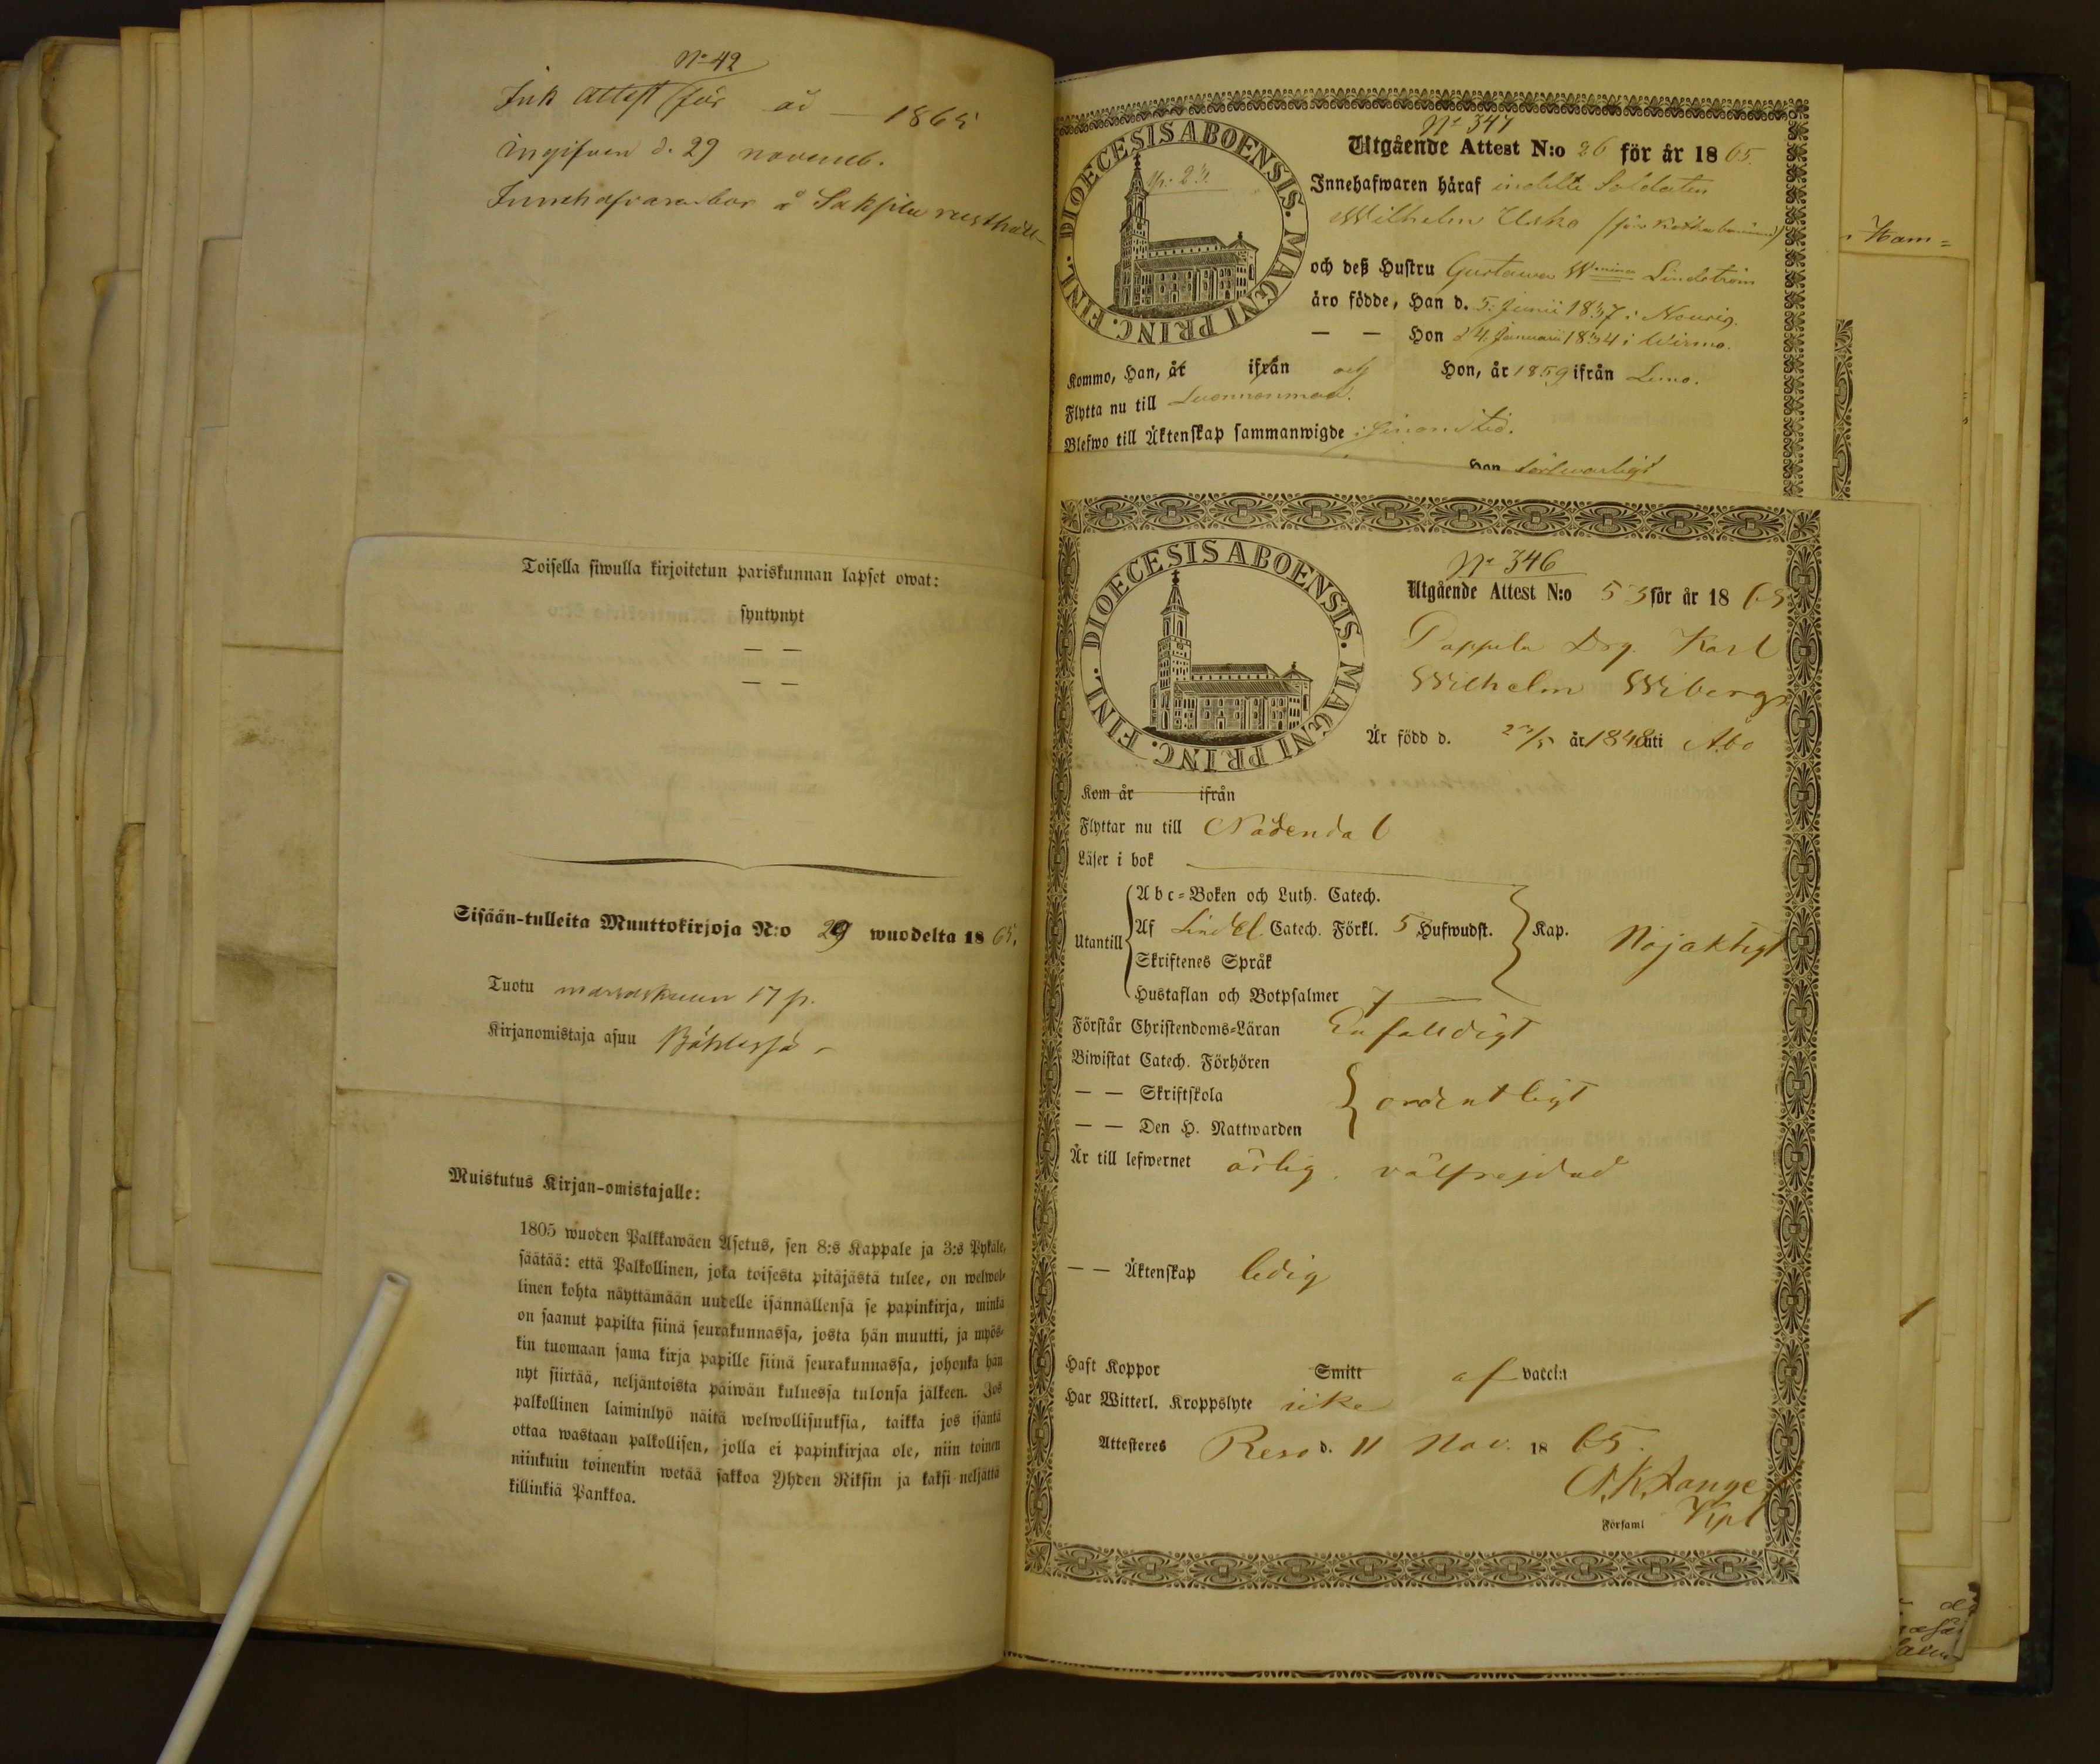 No 42
Ink attest för år — 1865
ingifven d. 29 novemb.
Innehafvaren bor å rusthåll
Toisella siwulla kirjoitetun pariskunnan lapset owat:
syntynyt
— —
— —
Sisään-tulleita Muuttokirjoja N:o 29 wuodelta 18 65.
Tuotu marraskuun 17 p.
Kirjanomistaja asuu
Muistutus Kirjan-omistajalle:
1805 wuoden Palkkawäen Asetus, sen 8:s Kappale ja 3:s Pykäle,
säätää: että Palkollinen, joka toisesta pitäjästä tulee, on welwol-
linen kohta näyttämään uudelle isännällensä se papinkirja, minkä
on saanut papilta siinä seurakunnassa, josta hän muutti, ja myös-
kin tuomaan sama kirja papille siinä seurakunnassa, johonka hän
nyt siirtää, neljäntoista päiwän kuluessa tulonsa jälkeen. Jos
palkollinen laiminlyö näitä welwollisuuksia, taikka jos isäntä
ottaa wastaan palkollisen, jolla ei papinkirjaa ole, niin toinen
niinkuin toinenkin wetää sakkoa Yhden Riksin ja kaksi neljättä
killinkiä Pankkoa.
DIOECESIS ABOENSIS. MAGNI PRINC. FINL.
No 347
Utgående Attest N:o 26 för år 18 65.
Innehafwaren häraf indelte Soldaten
Wilhelm Usko
och deß Hustru Gustawa Wmina Lindström
äro födde, Han d. 5. Junii 1837 i Nousis.
— — Hon 24. Januarii 1834 i Wirmo.
Kommo, Han, år ifrån och Hon, år 1859 ifrån Lemo.
Flytta nu till Luonnonmaa.
Blefwo till Äktenskap sammanwigde i sinom tid.
Han
DIOECESIS ABOENSIS. MAGNI PRINC. FINL.
No 346
Utgående Attest N:o 53 för år 18 65
Pappila Drg. Karl
Wilhelm Wiberg
Är född d. år 1848 uti Åbo
Kom år ifrån
Flyttar nu till Nådendal
Läser i bok
Utantill
Abc-Boken och Luth. Catech.
Af Lindel Catech. Förkl. 5 Hufwudst. Kap. Nöjaktigt
Skriftenes Språk
Hustaflan och Botpsalmer 7
Förstår Christendoms-Läran Enfalldigt
Biwistat Catech. Förhören
— — Skriftskola ordentligt
— — Den H. Nattwarden
Är till lefwernet ärlig. välfrejdad
— — Äktenskap ledig
Haft Koppor Smitt af vacc:n
Har Witterl. Kroppslyte icke
Attesteres Reso d. 11 Nov. 18 65.
Församl Kpl
Ham=